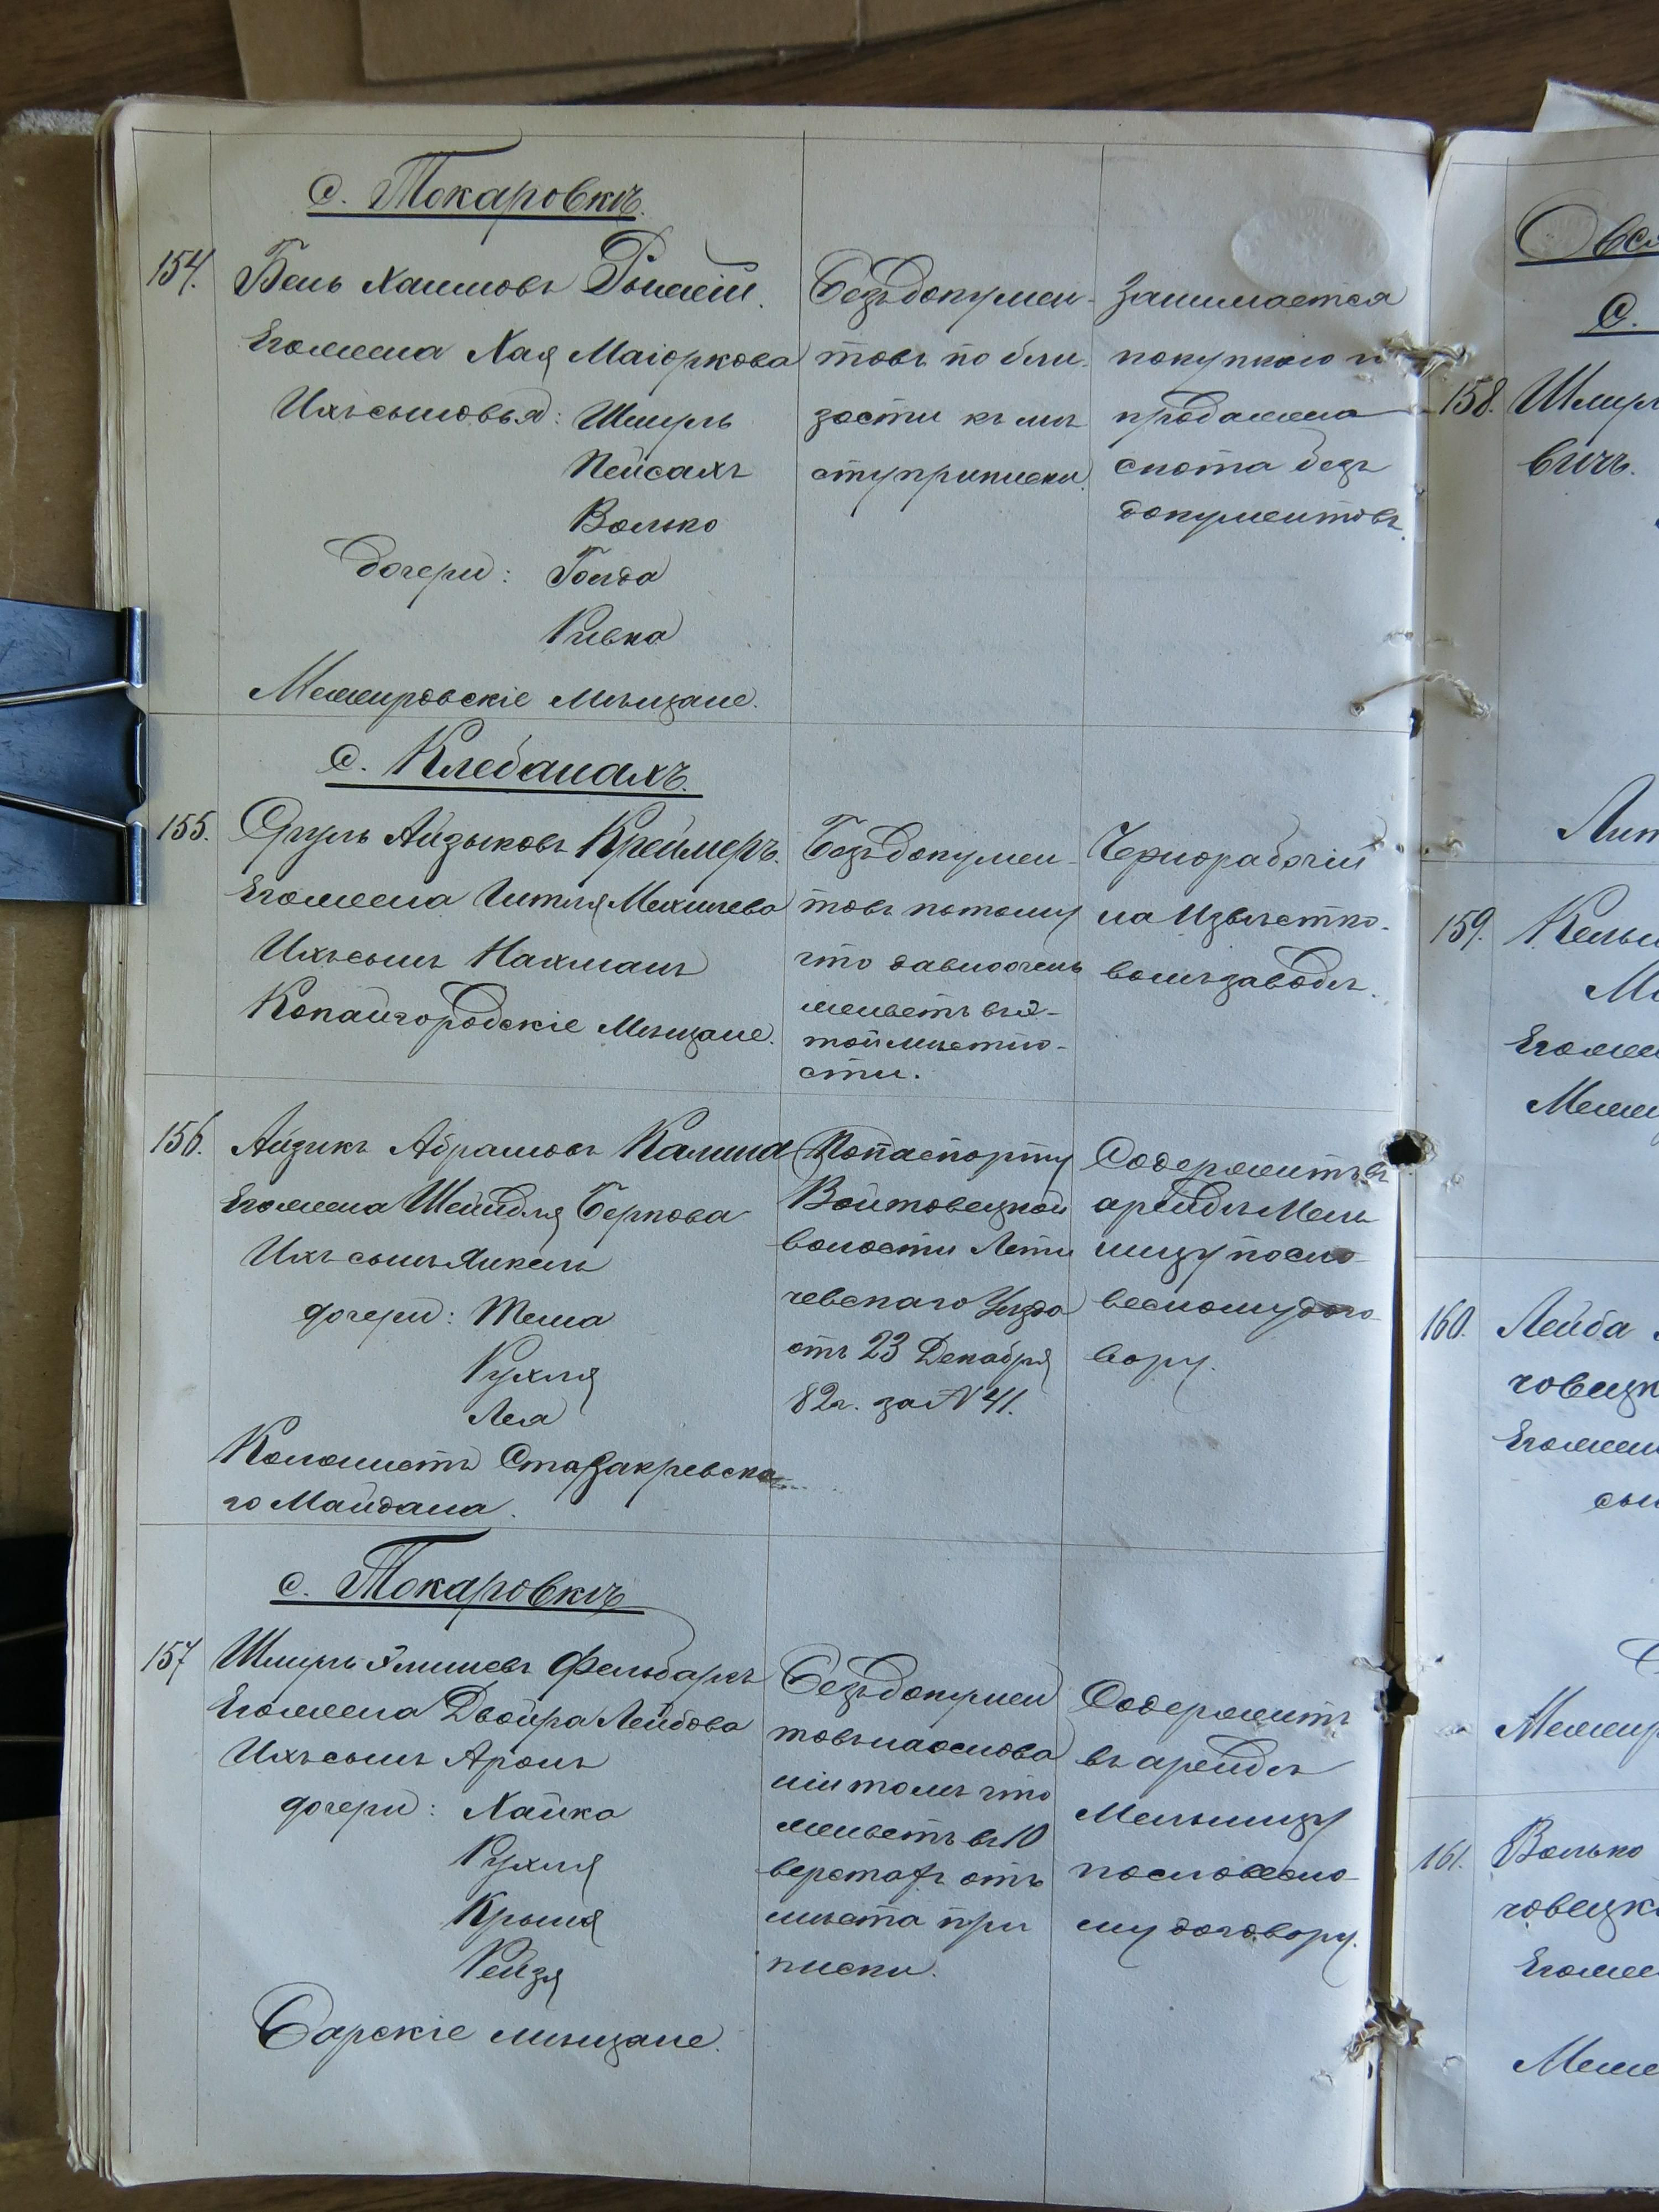 с. Токаровкѣ.
154. Бень Хаимовъ Рыжій.
Егожена Хая Маіоркова
Ихъсыновья: Шмуль
Пейсахъ
Волько
дочери: Голда
Ривка
Межировскіе Мѣщане.
Бездокумен-
товъ по бли-
зости къ мѣ
ступриписки.
Занимается
покупкою и
продажею
скота безъ
документовъ.
с. Клебанахъ.
155. Сруль Айзыковъ Креймеръ.
Егожена Гитля Мехилева
Ихъсынъ Нахманъ
Копайгородскіе Мѣщане.
Безъдокумен-
товъ потому
что давноочень
живетъ въэ-
тоймѣстно-
сти.
Чернорабочій
на Извѣстко-
вомъзаводѣ.
156. Айзикъ Абрамовъ Калина
Егожена Шейндля Беркова
Ихъ сынъ Янкель
дочери: Тема
Рухля
Лея
Колонистъ Стазакревска
го Майдана.
Попаспорту
Войтовецкой
волости Лети
чевскаго Уѣзда
отъ 23 Декабря
82г. за № 41.
Содержитъвъ
арендѣ Мель
ницу посло-
весномудого-
вору.
с. Токаровкѣ
157 Шмуль Элишевъ Фельбаръ
Егожена Двойра Лейбова
Ихъсынъ Аронъ
дочери: Хайка
Рухля
Крыня
Рейзя
Барскіе мѣщане.
Безъдокумен
товънаоснова
ніи томъ что
живетъ въ 10
верстахъ отъ
мѣста при
писки.
Содержитъ
въ арендѣ
Мельницу
пословесно-
му договору.
с.
158. Шмул
вичъ.
159.
160. Лейба
човецк
161. Волько
човецк